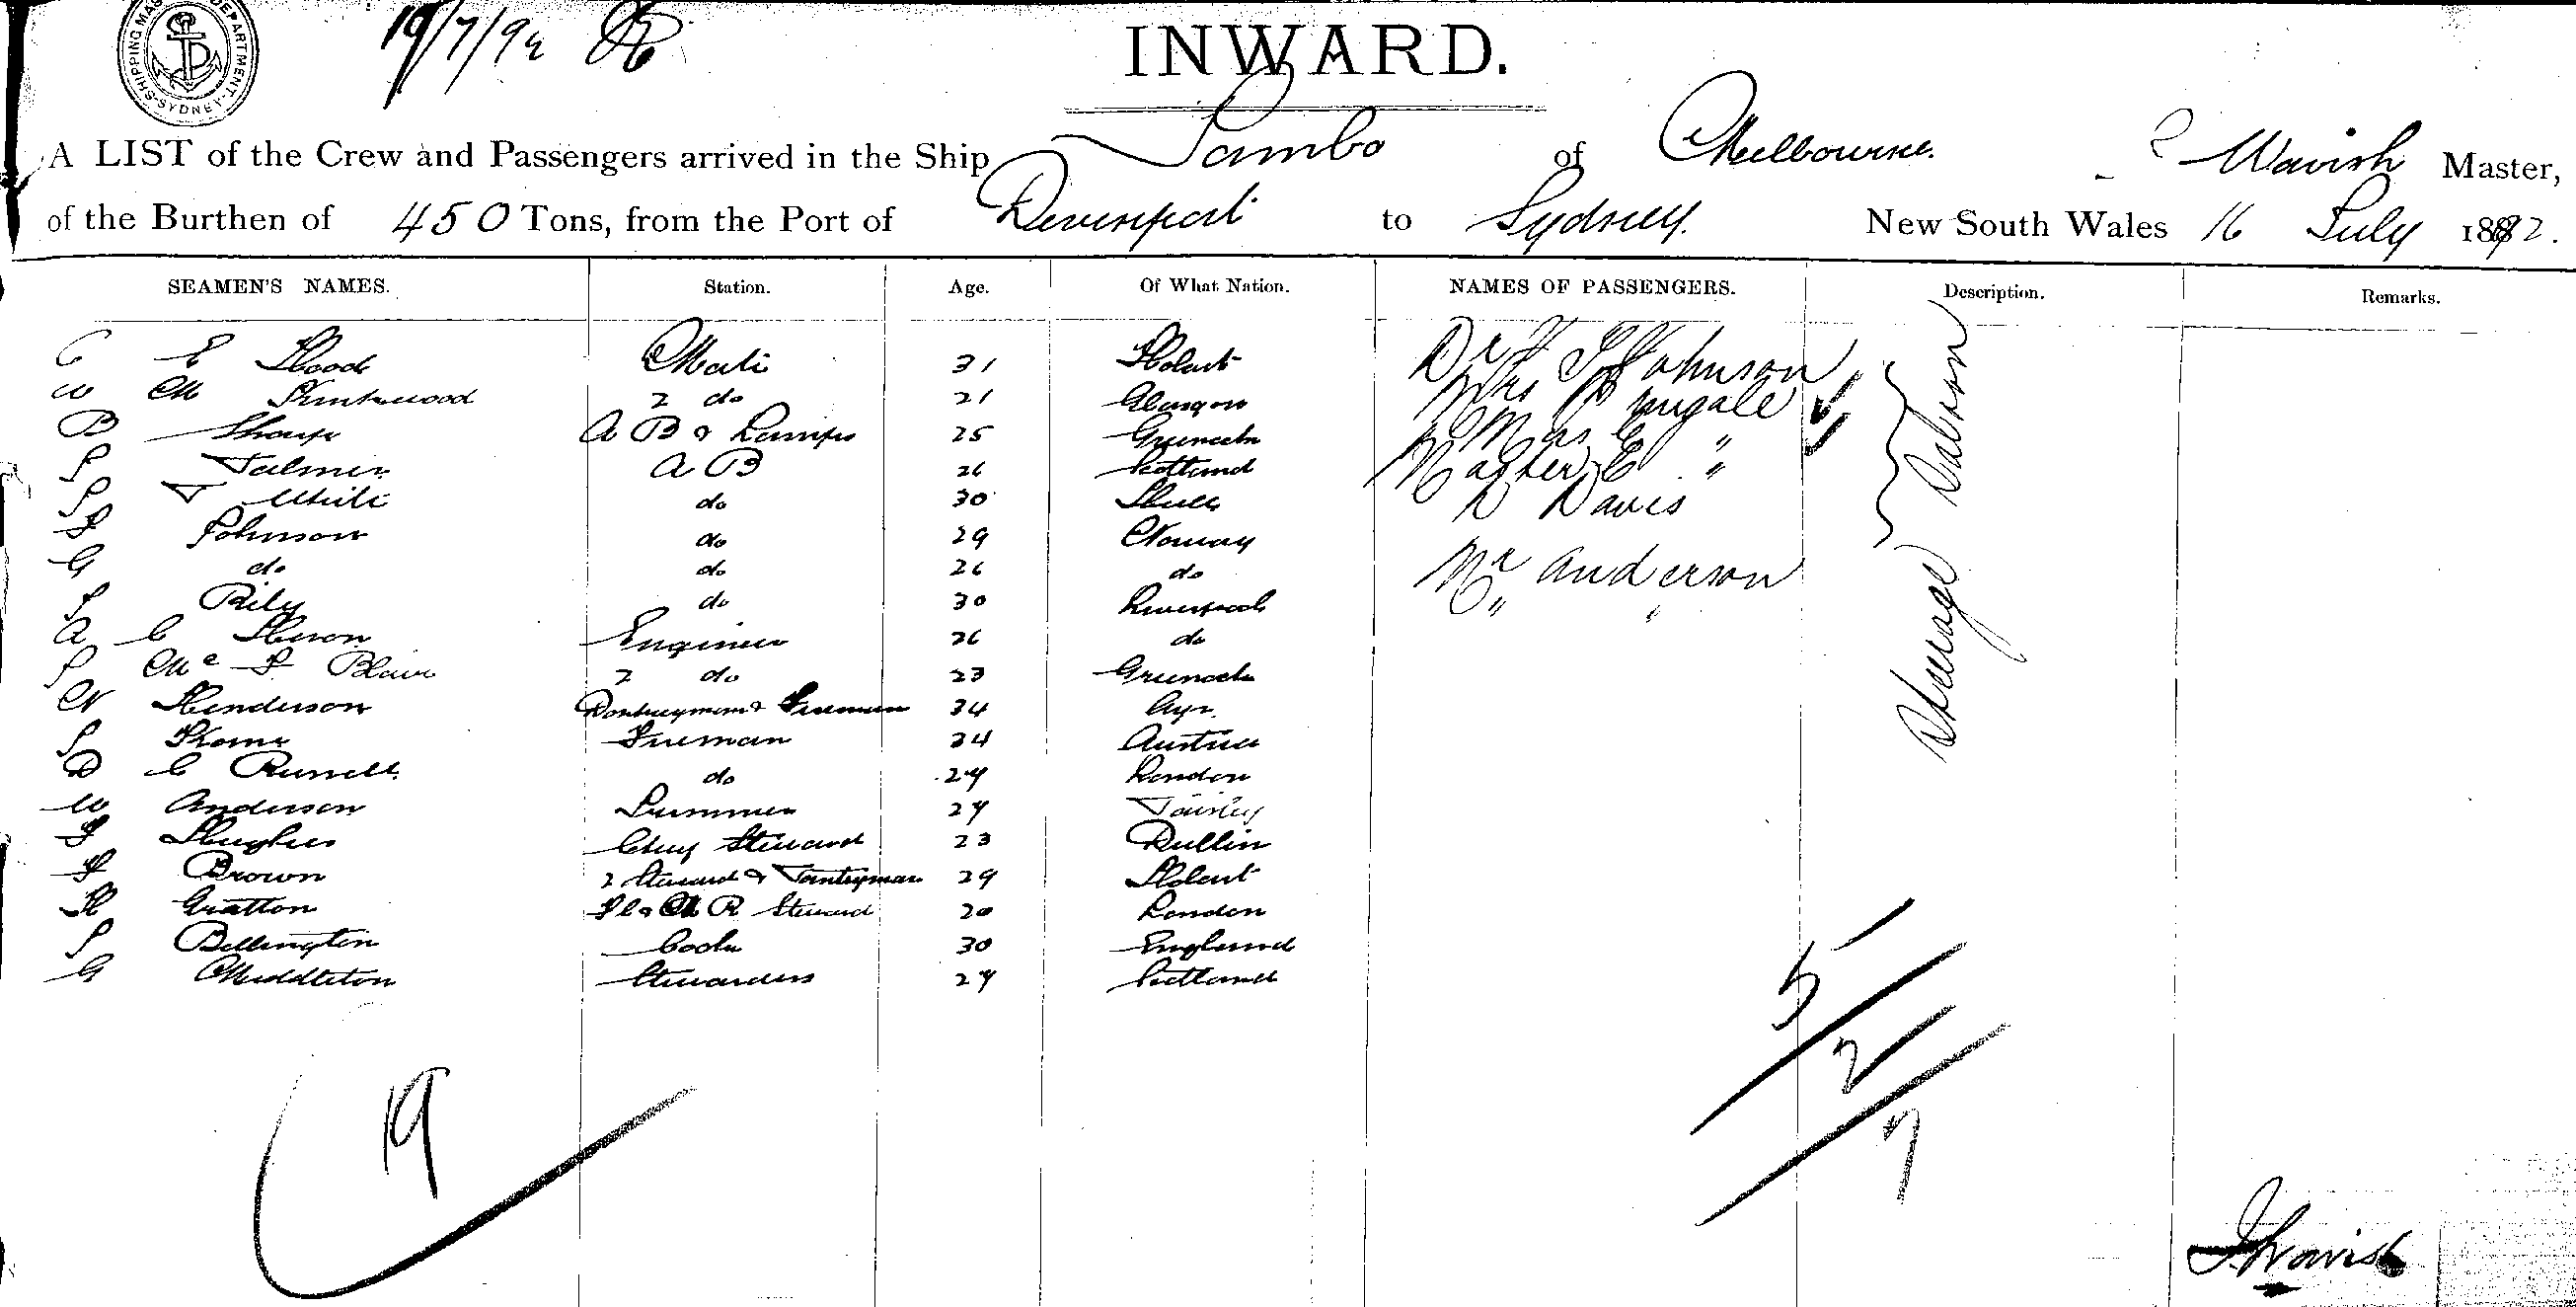 SHIPPING MASTER'S DEPARTMENT. SYDNEY
19/7/92
INWARD.
A LIST of the Crew and Passengers arrived in the Ship Sambo of Melbourne. Wavish Master,
of the Burthen of 450 Tons, from the Port of Devenport to Sydney. New South Wales 16 July 1892.
SEAMEN'S NAMES. Station. Age. Of What Nation. NAMES OF PASSENGERS. Description. Remarks.
C E Hood Mate 31 Hobart Dr Johnson
W M 2 do 21 Glasgow Mrs
B Sharp A B & Lamps 25 Greenock Miss E "
J Palmer A B 26 Scotland Master E "
J T White do 30 Hull D Davis
F Johnson do 29 Norway
G do do 26 do Mr Anderson
J Rily do 30 Liverpool " "
A C Heron Engineer 26 do
J Mc F Blain 2 do 23 Greenock
N Henderson Donkeyman & Fireman 34 Ayr.
J Thoms Fireman 34 Austria
D C Russell do 24 London
W Anderson Trimmer 24 Paisley
F Hughes Chief Steward 23 Dublin
F Brown 2 Steward & Pantryman 29 Hobart
H Gratton R Steward 20 London
J Bellington Cook 30 England
G Middleton Stewardess 24 Scotland
Saloon
Steerage
5
2
7
19
Wavish